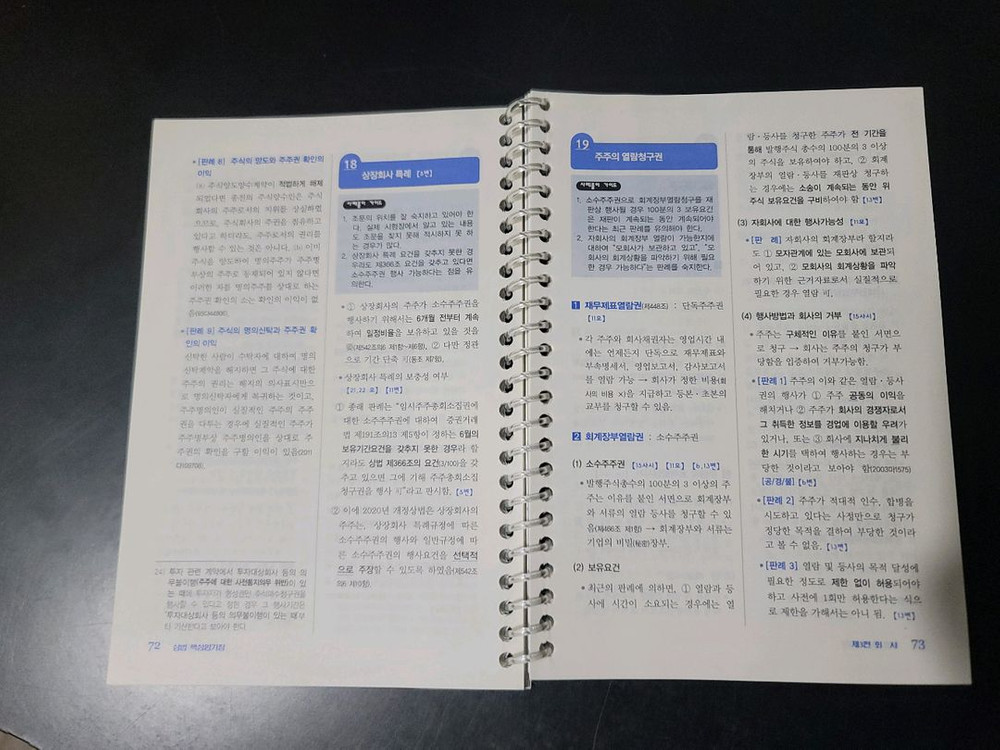 • [판례 8] 주식의 양도와 주주권 확인의
이익
(a) 주식양도양수계약이 적법하게 해제
되었다면 종전의 주식양수인은 주식
회사의 주주로서의 지위를 상실하였
으므로, 주식회사의 주권을 점유하고
있다고 하더라도, 주주로서의 권리를
행사할 수 있는 것은 아니다. (b) 이미
주식을 양도하여 명의주주가 주주명
부상의 주주로 등재되어 있지 않다면
이러한 자를 명의주주를 상대로 하는
주주권 확인의 소는 확인의 이익이 없
음
• [판례 9] 주식의 명의신탁과 주주권 확
인의 이익
신탁한 사람이 수탁자에 대하여 명의
신탁계약을 해지하면 그 주식에 대한
주주의 권리는 해지의 의사표시만으
로 명의신탁자에게 복귀하는 것이고,
주주명의인이 실질적인 주주의 주주
권을 다투는 경우에 실질적인 주주가
주주명부상 주주명의인을 상대로 주
주권의 확인을 구할 이익이 있음(2011
다109708).
24) 투자 관련 계약에서 투자대상회사 등의 의
무불이행(주주에 대한 사전동의의무 위반)이 있
는 때에 투자자가 형성권인 주식매수청구권을
행사할 수 있다고 정한 경우 그 행사기간은
투자대상회사 등의 의무불이행이 있는 때부
터 기산한다고 보아야 한다
72 상법 핵심암기장
18
상장회사 특례 [5변]
사례풀이 가이드
1. 조문의 위치를 잘 숙지하고 있어야 한
다. 실제 시험장에서 알고 있는 내용
도 조문을 찾지 못해 적시하지 못 하
는 경우가 많다.
2. 상장회사 특례 요건을 갖추지 못한 경
우라도 제366조 요건을 갖추고 있다면
소수주주권 행사 가능하다는 점을 유
의한다.
• ① 상장회사의 주주가 소수주주권을
행사하기 위해서는 6개월 전부터 계속
하여 일정비율을 보유하고 있을 것을
要(제542조의6 제1항~제6항), ② 다만 정관
으로 기간 단축 可(동조 제7항).
• 상장회사 특례의 보충성 여부
[21,22 모] [11변]
① 종래 판례는 “임시주주총회소집권에
대한 소수주주권에 대하여 증권거래
법 제191조의13 제5항이 정하는 6월의
보유기간요건을 갖추지 못한 경우라 할
지라도 상법 제366조의 요건(3/100)을 갖
추고 있으면 그에 기해 주주총회소집
청구권을 행사 可”라고 판시함. [5변]
② 이에 2020년 개정상법은 상장회사의
주주는, 상장회사 특례규정에 따른
소수주주권의 행사와 일반규정에 따
른 소수주주권의 행사요건을 선택적
으로 주장할 수 있도록 하였음(제542조
의6 제10항).
19
주주의 열람청구권
사례풀이 가이드
1. 소수주주권으로 회계장부열람청구를 재
판상 행사될 경우 100분의 3 보유요건
은 재판이 계속되는 동안 계속되어야
한다는 최근 판례를 유의해야 한다.
2. 자회사의 회계장부 열람이 가능한지에
대하여 “모회사가 보관하고 있고”, “모
회사의 회계상황을 파악하기 위해 필요
한 경우 가능하다”는 판례를 숙지한다.
1 재무제표열람권(제448조) : 단독주주권
[11모]
• 각 주주와 회사채권자는 영업시간 내
에는 언제든지 단독으로 재무제표와
부속명세서, 영업보고서, 감사보고서
를 열람 가능 → 회사가 정한 비용(회
사의 비용 X)을 지급하고 등본 · 초본의
교부를 청구할 수 있음.
2 회계장부열람권 : 소수주주권
(1) 소수주주권 [15사시] [11모] [6,13변]
• 발행주식총수의 100분의 3 이상의 주
주는 이유를 붙인 서면으로 회계장부
와 서류의 열람 등사를 청구할 수 있
음(제466조 제1항) → 회계장부와 서류는
기업의 비밀(秘密)장부.
(2) 보유요건
• 최근의 판례에 의하면, ① 열람과 등
사에 시간이 소요되는 경우에는 열
람 · 등사를 청구한 주주가 전 기간을
통해 발행주식 총수의 100분의 3 이상
의 주식을 보유하여야 하고, ② 회계
장부의 열람 · 등사를 재판상 청구하
는 경우에는 소송이 계속되는 동안 위
주식 보유요건을 구비하여야 함 [13변]
(3) 자회사에 대한 행사가능성 [11모]
• [판 례] 자회사의 회계장부라 할지라
도 ① 모자관계에 있는 모회사에 보관되
어 있고, ② 모회사의 회계상황을 파악
하기 위한 근거자료로서 실질적으로
필요한 경우 열람 可.
(4) 행사방법과 회사의 거부 [15사시]
• 주주는 구체적인 이유를 붙인 서면으
로 청구 → 회사는 주주의 청구가 부
당함을 입증하여 거부가능함.
• [판례 1] 주주의 이와 같은 열람 · 등사
권의 행사가 ① 주주 공동의 이익을
해치거나 ② 주주가 회사의 경쟁자로서
그 취득한 정보를 경업에 이용할 우려가
있거나, 또는 ③ 회사에 지나치게 불리
한 시기를 택하여 행사하는 경우는 부
당한 것이라고 보아야 함(2003마1575)
[공/경/불] [6변]
• [판례 2] 주주가 적대적 인수, 합병을
시도하고 있다는 사정만으로 청구가
정당한 목적을 결하여 부당한 것이라
고 볼 수 없음. [13변]
• [판례 3] 열람 및 등사의 목적 달성에
필요한 정도로 제한 없이 허용되어야
하고 사전에 1회만 허용한다는 식으
로 제한을 가해서는 아니 됨. [13변]
제1편 회 사 73